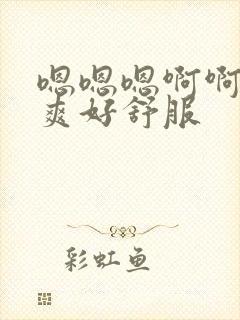 嗯嗯嗯啊啊
爽好舒服
彩虹鱼